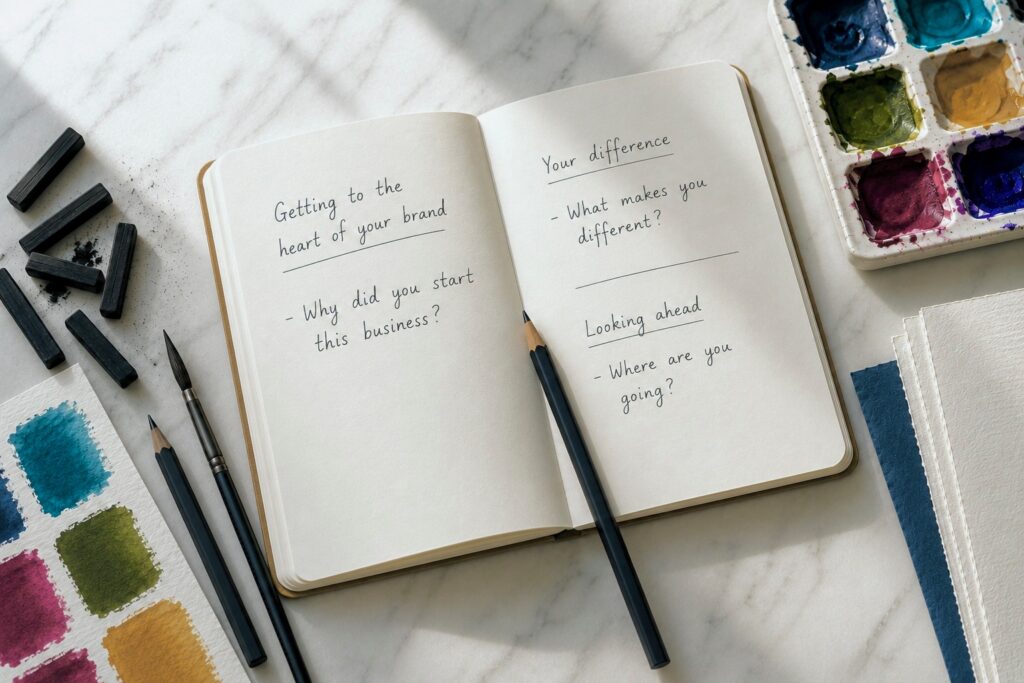 Getting to the
heart of your brand
- Why did you start
this business?
Your difference
- What makes you
different?
Looking ahead
- Where are you
going?